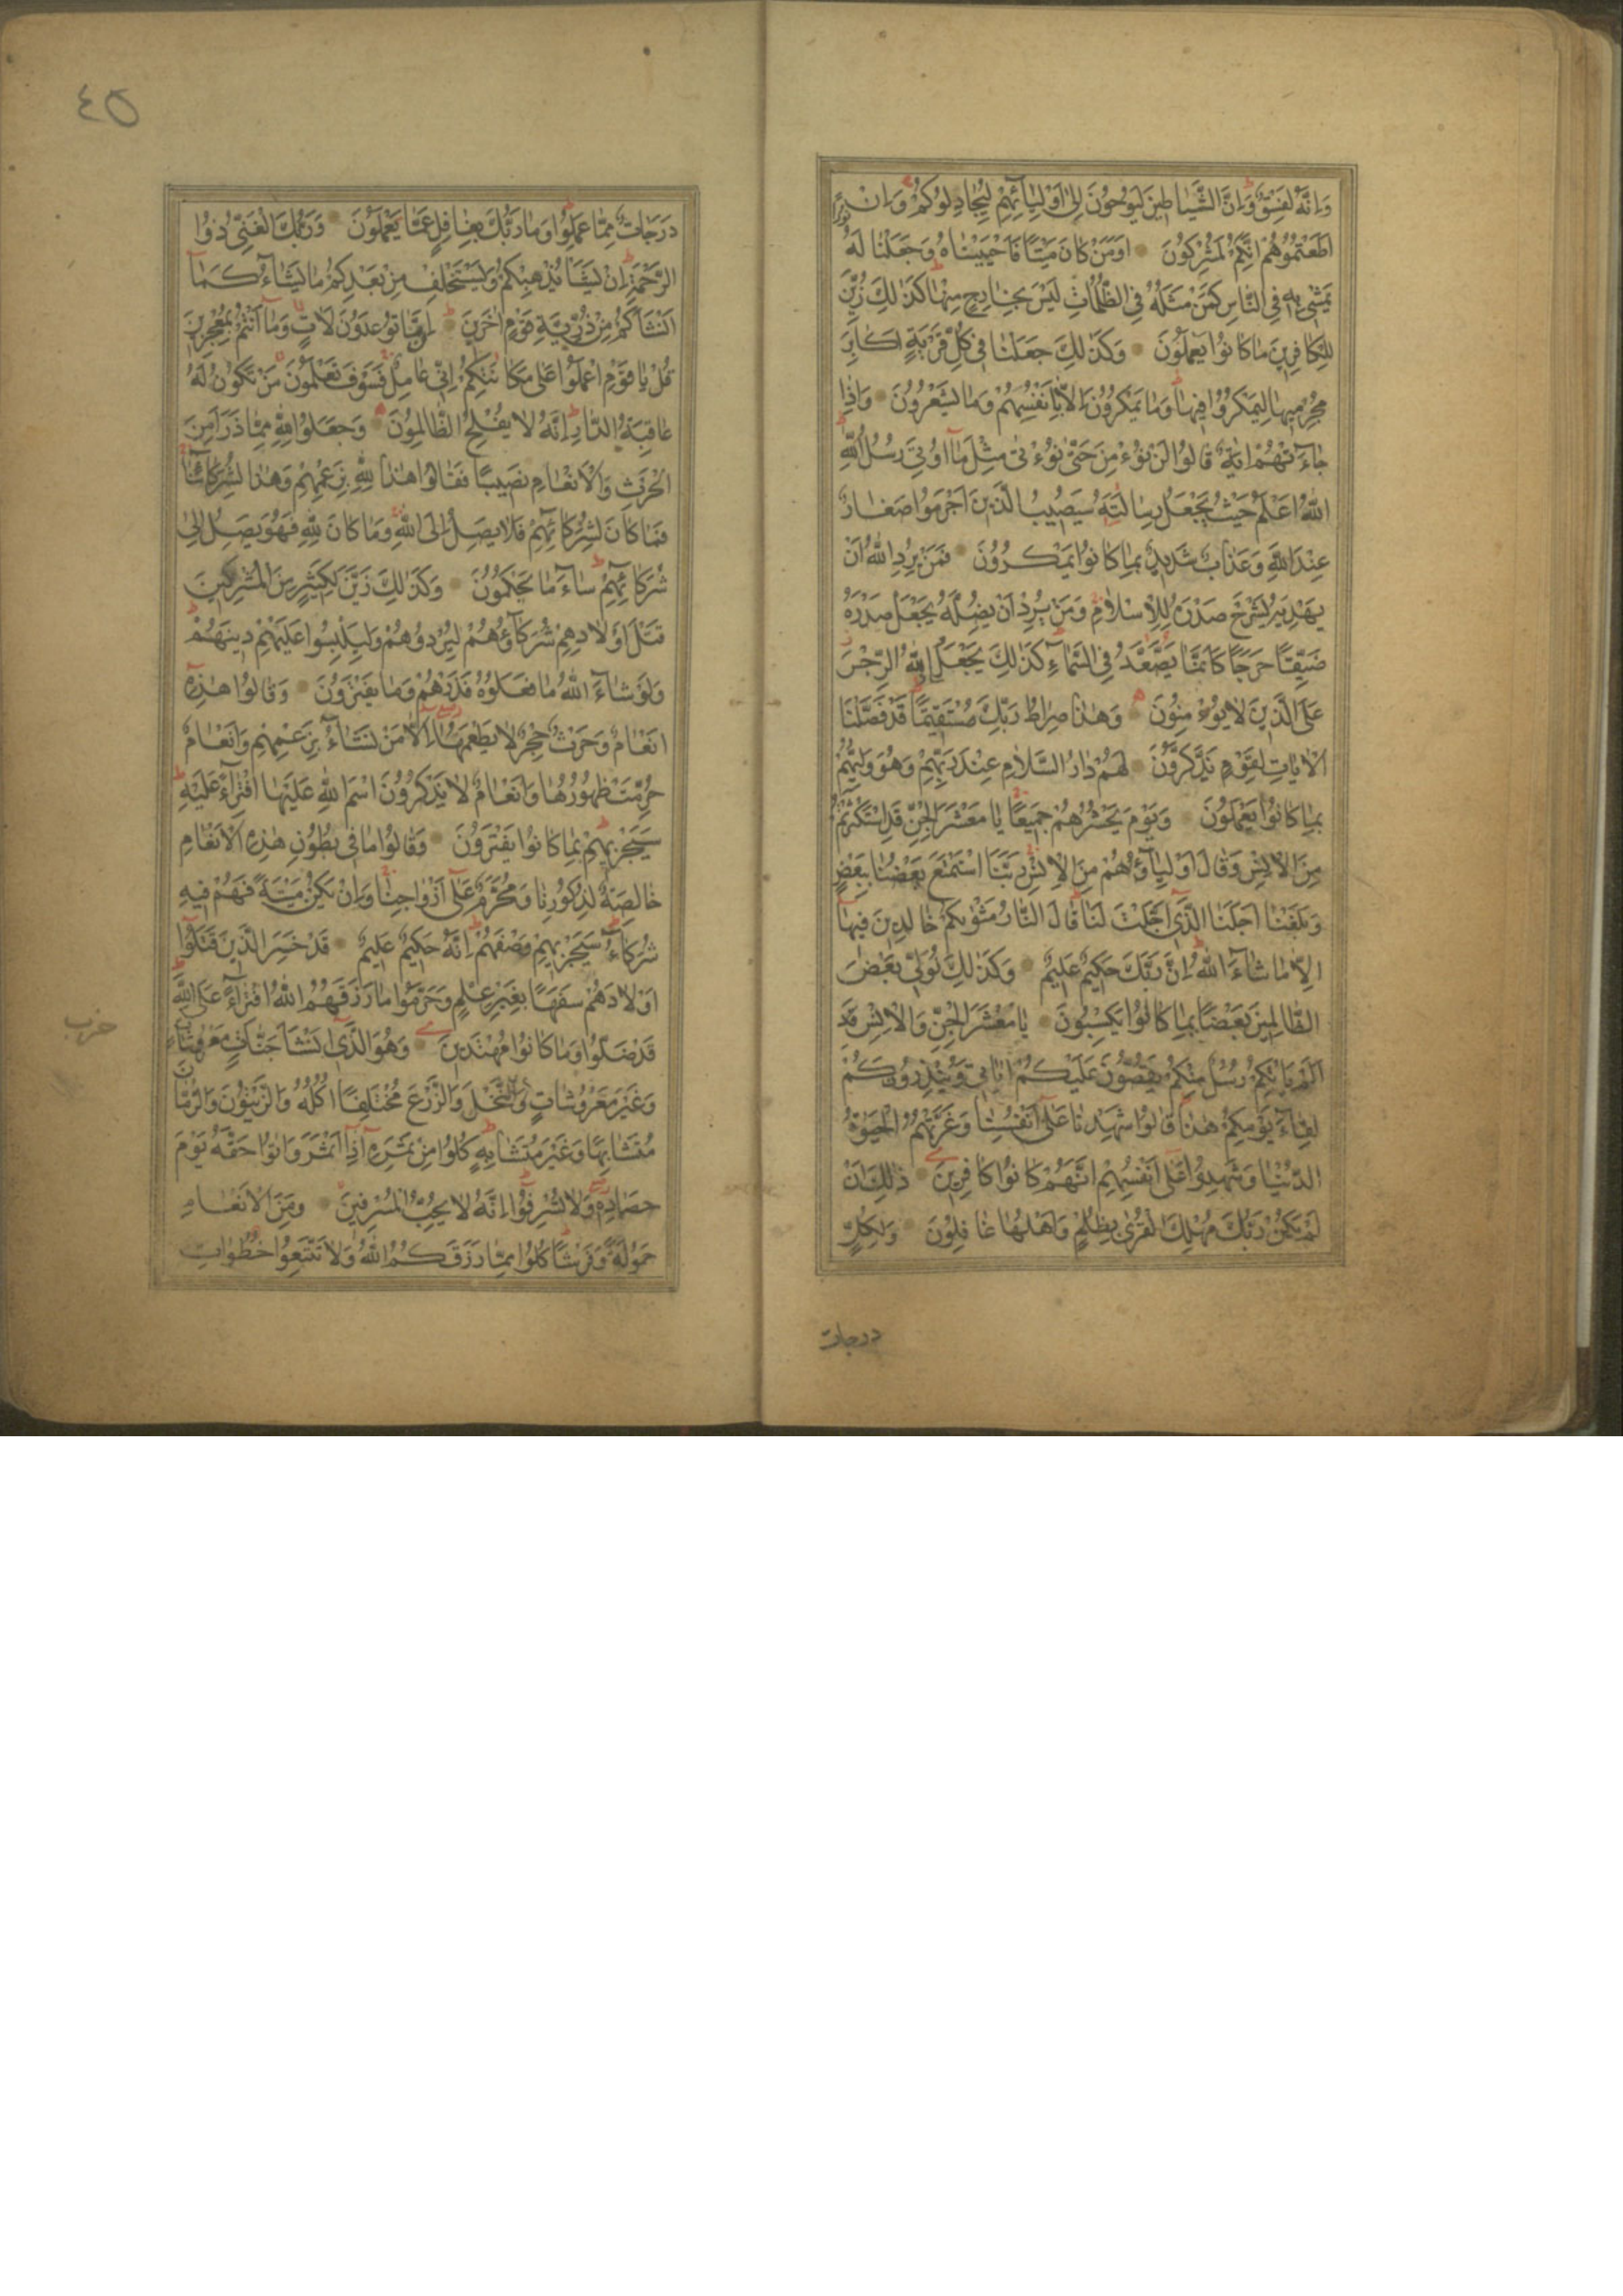 وَاِنَّهُ لَفِسْقٌ وَاِنَّ الشَّيَاطِينَ لَيُوحُونَ اِلٰى اَوْلِيَائِهِمْ لِيُجَادِلُوكُمْ وَاِنْ
اَطَعْتُمُوهُمْ اِنَّكُمْ لَمُشْرِكُونَ اَوَمَنْ كَانَ مَيْتًا فَاَحْيَيْنَاهُ وَجَعَلْنَا لَهُ نُورًا
يَمْشِي بِهِ فِي النَّاسِ كَمَنْ مَثَلُهُ فِي الظُّلُمَاتِ لَيْسَ بِخَارِجٍ مِنْهَا كَذٰلِكَ زُيِّنَ
لِلْكَافِرِينَ مَا كَانُوا يَعْمَلُونَ وَكَذٰلِكَ جَعَلْنَا فِي كُلِّ قَرْيَةٍ اَكَابِرَ
مُجْرِمِيهَا لِيَمْكُرُوا فِيهَا وَمَا يَمْكُرُونَ اِلَّا بِاَنْفُسِهِمْ وَمَا يَشْعُرُونَ وَاِذَا
جَاءَتْهُمْ اٰيَةٌ قَالُوا لَنْ نُؤْمِنَ حَتّٰى نُؤْتٰى مِثْلَ مَا اُوتِيَ رُسُلُ اللّٰهِ
اَللّٰهُ اَعْلَمُ حَيْثُ يَجْعَلُ رِسَالَتَهُ سَيُصِيبُ الَّذِينَ اَجْرَمُوا صَغَارٌ
عِنْدَ اللّٰهِ وَعَذَابٌ شَدِيدٌ بِمَا كَانُوا يَمْكُرُونَ فَمَنْ يُرِدِ اللّٰهُ اَنْ
يَهْدِيَهُ يَشْرَحْ صَدْرَهُ لِلْاِسْلَامِ وَمَنْ يُرِدْ اَنْ يُضِلَّهُ يَجْعَلْ صَدْرَهُ
ضَيِّقًا حَرَجًا كَاَنَّمَا يَصَّعَّدُ فِي السَّمَاءِ كَذٰلِكَ يَجْعَلُ اللّٰهُ الرِّجْسَ
عَلَى الَّذِينَ لَا يُؤْمِنُونَ وَهٰذَا صِرَاطُ رَبِّكَ مُسْتَقِيمًا قَدْ فَصَّلْنَا
الْاٰيَاتِ لِقَوْمٍ يَذَّكَّرُونَ لَهُمْ دَارُ السَّلَامِ عِنْدَ رَبِّهِمْ وَهُوَ وَلِيُّهُمْ
بِمَا كَانُوا يَعْمَلُونَ وَيَوْمَ يَحْشُرُهُمْ جَمِيعًا يَا مَعْشَرَ الْجِنِّ قَدِ اسْتَكْثَرْتُمْ
مِنَ الْاِنْسِ وَقَالَ اَوْلِيَاؤُهُمْ مِنَ الْاِنْسِ رَبَّنَا اسْتَمْتَعَ بَعْضُنَا بِبَعْضٍ
وَبَلَغْنَا اَجَلَنَا الَّذِي اَجَّلْتَ لَنَا قَالَ النَّارُ مَثْوٰيكُمْ خَالِدِينَ فِيهَا
اِلَّا مَا شَاءَ اللّٰهُ اِنَّ رَبَّكَ حَكِيمٌ عَلِيمٌ وَكَذٰلِكَ نُوَلِّي بَعْضَ
الظَّالِمِينَ بَعْضًا بِمَا كَانُوا يَكْسِبُونَ يَا مَعْشَرَ الْجِنِّ وَالْاِنْسِ
اَلَمْ يَاْتِكُمْ رُسُلٌ مِنْكُمْ يَقُصُّونَ عَلَيْكُمْ اٰيَاتِي وَيُنْذِرُونَكُمْ
لِقَاءَ يَوْمِكُمْ هٰذَا قَالُوا شَهِدْنَا عَلٰى اَنْفُسِنَا وَغَرَّتْهُمُ الْحَيٰوةُ
الدُّنْيَا وَشَهِدُوا عَلٰى اَنْفُسِهِمْ اَنَّهُمْ كَانُوا كَافِرِينَ ذٰلِكَ اَنْ
لَمْ يَكُنْ رَبُّكَ مُهْلِكَ الْقُرٰى بِظُلْمٍ وَاَهْلُهَا غَافِلُونَ وَلِكُلٍّ
درجات
٤٥
دَرَجَاتٌ مِمَّا عَمِلُوا وَمَا رَبُّكَ بِغَافِلٍ عَمَّا يَعْمَلُونَ وَرَبُّكَ الْغَنِيُّ ذُوا
الرَّحْمَةِ اِنْ يَشَاْ يُذْهِبْكُمْ وَيَسْتَخْلِفْ مِنْ بَعْدِكُمْ مَا يَشَاءُ كَمَا
اَنْشَاَكُمْ مِنْ ذُرِّيَّةِ قَوْمٍ اٰخَرِينَ اِنَّمَا تُوعَدُونَ لَاٰتٍ وَمَا اَنْتُمْ بِمُعْجِزِينَ
قُلْ يَا قَوْمِ اعْمَلُوا عَلٰى مَكَانَتِكُمْ اِنِّي عَامِلٌ فَسَوْفَ تَعْلَمُونَ مَنْ تَكُونُ لَهُ
عَاقِبَةُ الدَّارِ اِنَّهُ لَا يُفْلِحُ الظَّالِمُونَ وَجَعَلُوا لِلّٰهِ مِمَّا ذَرَاَ مِنَ
الْحَرْثِ وَالْاَنْعَامِ نَصِيبًا فَقَالُوا هٰذَا لِلّٰهِ بِزَعْمِهِمْ وَهٰذَا لِشُرَكَائِنَا
فَمَا كَانَ لِشُرَكَائِهِمْ فَلَا يَصِلُ اِلَى اللّٰهِ وَمَا كَانَ لِلّٰهِ فَهُوَ يَصِلُ اِلٰى
شُرَكَائِهِمْ سَاءَ مَا يَحْكُمُونَ وَكَذٰلِكَ زَيَّنَ لِكَثِيرٍ مِنَ الْمُشْرِكِينَ
قَتْلَ اَوْلَادِهِمْ شُرَكَاؤُهُمْ لِيُرْدُوهُمْ وَلِيَلْبِسُوا عَلَيْهِمْ دِينَهُمْ
وَلَوْ شَاءَ اللّٰهُ مَا فَعَلُوهُ فَذَرْهُمْ وَمَا يَفْتَرُونَ وَقَالُوا هٰذِهِ
اَنْعَامٌ وَحَرْثٌ حِجْرٌ لَا يَطْعَمُهَا اِلَّا مَنْ نَشَاءُ بِزَعْمِهِمْ وَاَنْعَامٌ
حُرِّمَتْ ظُهُورُهَا وَاَنْعَامٌ لَا يَذْكُرُونَ اسْمَ اللّٰهِ عَلَيْهَا افْتِرَاءً عَلَيْهِ
سَيَجْزِيهِمْ بِمَا كَانُوا يَفْتَرُونَ وَقَالُوا مَا فِي بُطُونِ هٰذِهِ الْاَنْعَامِ
خَالِصَةٌ لِذُكُورِنَا وَمُحَرَّمٌ عَلٰى اَزْوَاجِنَا وَاِنْ يَكُنْ مَيْتَةً فَهُمْ فِيهِ
شُرَكَاءُ سَيَجْزِيهِمْ وَصْفَهُمْ اِنَّهُ حَكِيمٌ عَلِيمٌ قَدْ خَسِرَ الَّذِينَ قَتَلُوا
اَوْلَادَهُمْ سَفَهًا بِغَيْرِ عِلْمٍ وَحَرَّمُوا مَا رَزَقَهُمُ اللّٰهُ افْتِرَاءً عَلَى اللّٰهِ
قَدْ ضَلُّوا وَمَا كَانُوا مُهْتَدِينَ وَهُوَ الَّذِي اَنْشَاَ جَنَّاتٍ مَعْرُوشَاتٍ
حزب
وَغَيْرَ مَعْرُوشَاتٍ وَالنَّخْلَ وَالزَّرْعَ مُخْتَلِفًا اُكُلُهُ وَالزَّيْتُونَ وَالرُّمَّانَ
مُتَشَابِهًا وَغَيْرَ مُتَشَابِهٍ كُلُوا مِنْ ثَمَرِهِ اِذَا اَثْمَرَ وَاٰتُوا حَقَّهُ يَوْمَ
حَصَادِهِ وَلَا تُسْرِفُوا اِنَّهُ لَا يُحِبُّ الْمُسْرِفِينَ وَمِنَ الْاَنْعَامِ
حَمُولَةً وَفَرْشًا كُلُوا مِمَّا رَزَقَكُمُ اللّٰهُ وَلَا تَتَّبِعُوا خُطُوَاتِ